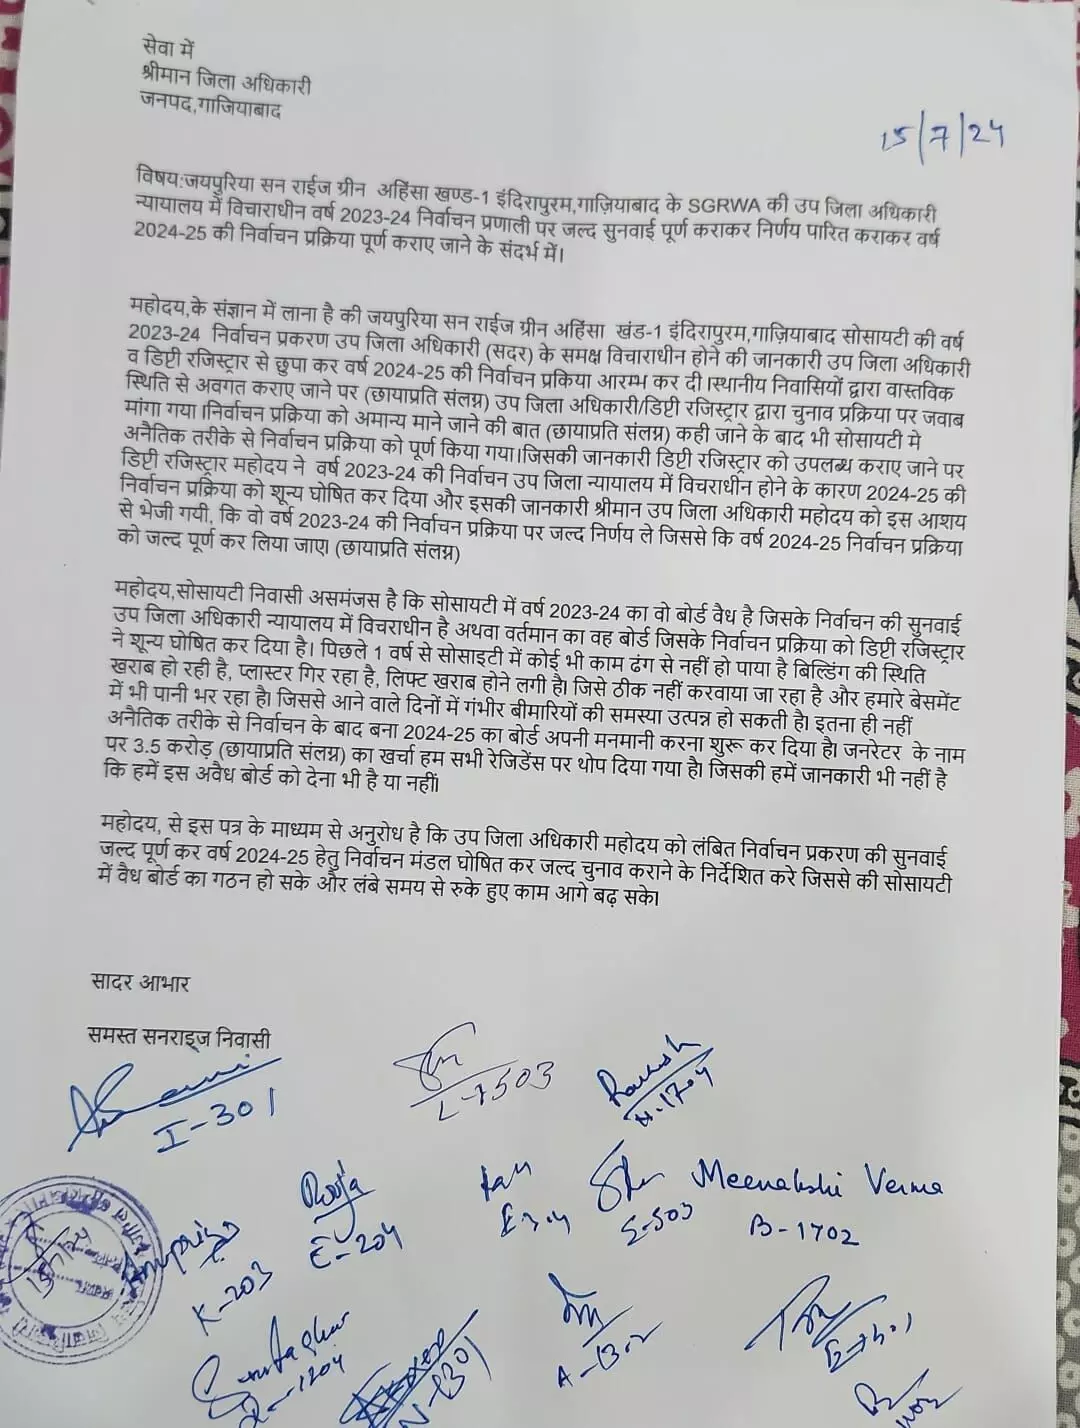 सेवा में
श्रीमान जिला अधिकारी
जनपद,गाजियाबाद
15/7/24
विषय:जयपुरिया सन राईज ग्रीन अहिंसा खण्ड-1 इंदिरापुरम,गाज़ियाबाद के SGRWA की उप जिला अधिकारी
न्यायालय में विचाराधीन वर्ष 2023-24 निर्वाचन प्रणाली पर जल्द सुनवाई पूर्ण कराकर निर्णय पारित कराकर वर्ष
2024-25 की निर्वाचन प्रक्रिया पूर्ण कराए जाने के संदर्भ में।
महोदय,के संज्ञान में लाना है की जयपुरिया सन राईज ग्रीन अहिंसा खंड-1 इंदिरापुरम,गाज़ियाबाद सोसायटी की वर्ष
2023-24 निर्वाचन प्रकरण उप जिला अधिकारी (सदर) के समक्ष विचाराधीन होने की जानकारी उप जिला अधिकारी
व डिप्टी रजिस्ट्रार से छुपा कर वर्ष 2024-25 की निर्वाचन प्रकिया आरम्भ कर दी ।स्थानीय निवासियों द्वारा वास्तविक
स्थिति से अवगत कराए जाने पर (छायाप्रति संलग्न) उप जिला अधिकारी/डिप्टी रजिस्ट्रार द्वारा चुनाव प्रक्रिया पर जवाब
मांगा गया ।निर्वाचन प्रक्रिया को अमान्य माने जाने की बात (छायाप्रति संलग्न) कही जाने के बाद भी सोसायटी मे
अनैतिक तरीके से निर्वाचन प्रक्रिया को पूर्ण किया गया।जिसकी जानकारी डिप्टी रजिस्ट्रार को उपलब्ध कराए जाने पर
डिप्टी रजिस्ट्रार महोदय ने वर्ष 2023-24 की निर्वाचन उप जिला न्यायालय में विचराधीन होने के कारण 2024-25 की
निर्वाचन प्रक्रिया को शून्य घोषित कर दिया और इसकी जानकारी श्रीमान उप जिला अधिकारी महोदय को इस आशय
से भेजी गयी, कि वो वर्ष 2023-24 की निर्वाचन प्रक्रिया पर जल्द निर्णय ले जिससे कि वर्ष 2024-25 निर्वाचन प्रक्रिया
को जल्द पूर्ण कर लिया जाए। (छायाप्रति संलग्न)
महोदय,सोसायटी निवासी असमंजस है कि सोसायटी में वर्ष 2023-24 का वो बोर्ड वैध है जिसके निर्वाचन की सुनवाई
उप जिला अधिकारी न्यायालय में विचराधीन है अथवा वर्तमान का वह बोर्ड जिसके निर्वाचन प्रक्रिया को डिप्टी रजिस्ट्रार
ने शून्य घोषित कर दिया है। पिछले 1 वर्ष से सोसाइटी में कोई भी काम ढंग से नहीं हो पाया है बिल्डिंग की स्थिति
खराब हो रही है, प्लास्टर गिर रहा है, लिफ्ट खराब होने लगी है। जिसे ठीक नहीं करवाया जा रहा है और हमारे बेसमेंट
में भी पानी भर रहा है। जिससे आने वाले दिनों में गंभीर बीमारियों की समस्या उत्पन्न हो सकती है। इतना ही नहीं
अनैतिक तरीके से निर्वाचन के बाद बना 2024-25 का बोर्ड अपनी मनमानी करना शुरू कर दिया है। जनरेटर के नाम
पर 3.5 करोड़ (छायाप्रति संलग्न) का खर्चा हम सभी रेजिडेंस पर थोप दिया गया है। जिसकी हमें जानकारी भी नहीं है
कि हमें इस अवैध बोर्ड को देना भी है या नहीं।
महोदय, से इस पत्र के माध्यम से अनुरोध है कि उप जिला अधिकारी महोदय को लंबित निर्वाचन प्रकरण की सुनवाई
जल्द पूर्ण कर वर्ष 2024-25 हेतु निर्वाचन मंडल घोषित कर जल्द चुनाव कराने के निर्देशित करे जिससे की सोसायटी
में वैध बोर्ड का गठन हो सके और लंबे समय से रुके हुए काम आगे बढ़ सके।
सादर आभार
समस्त सनराइज निवासी
I-301
Rakesh
Pooja
E-204
Meenakshi Verma
B-1702
K-203
A-1302